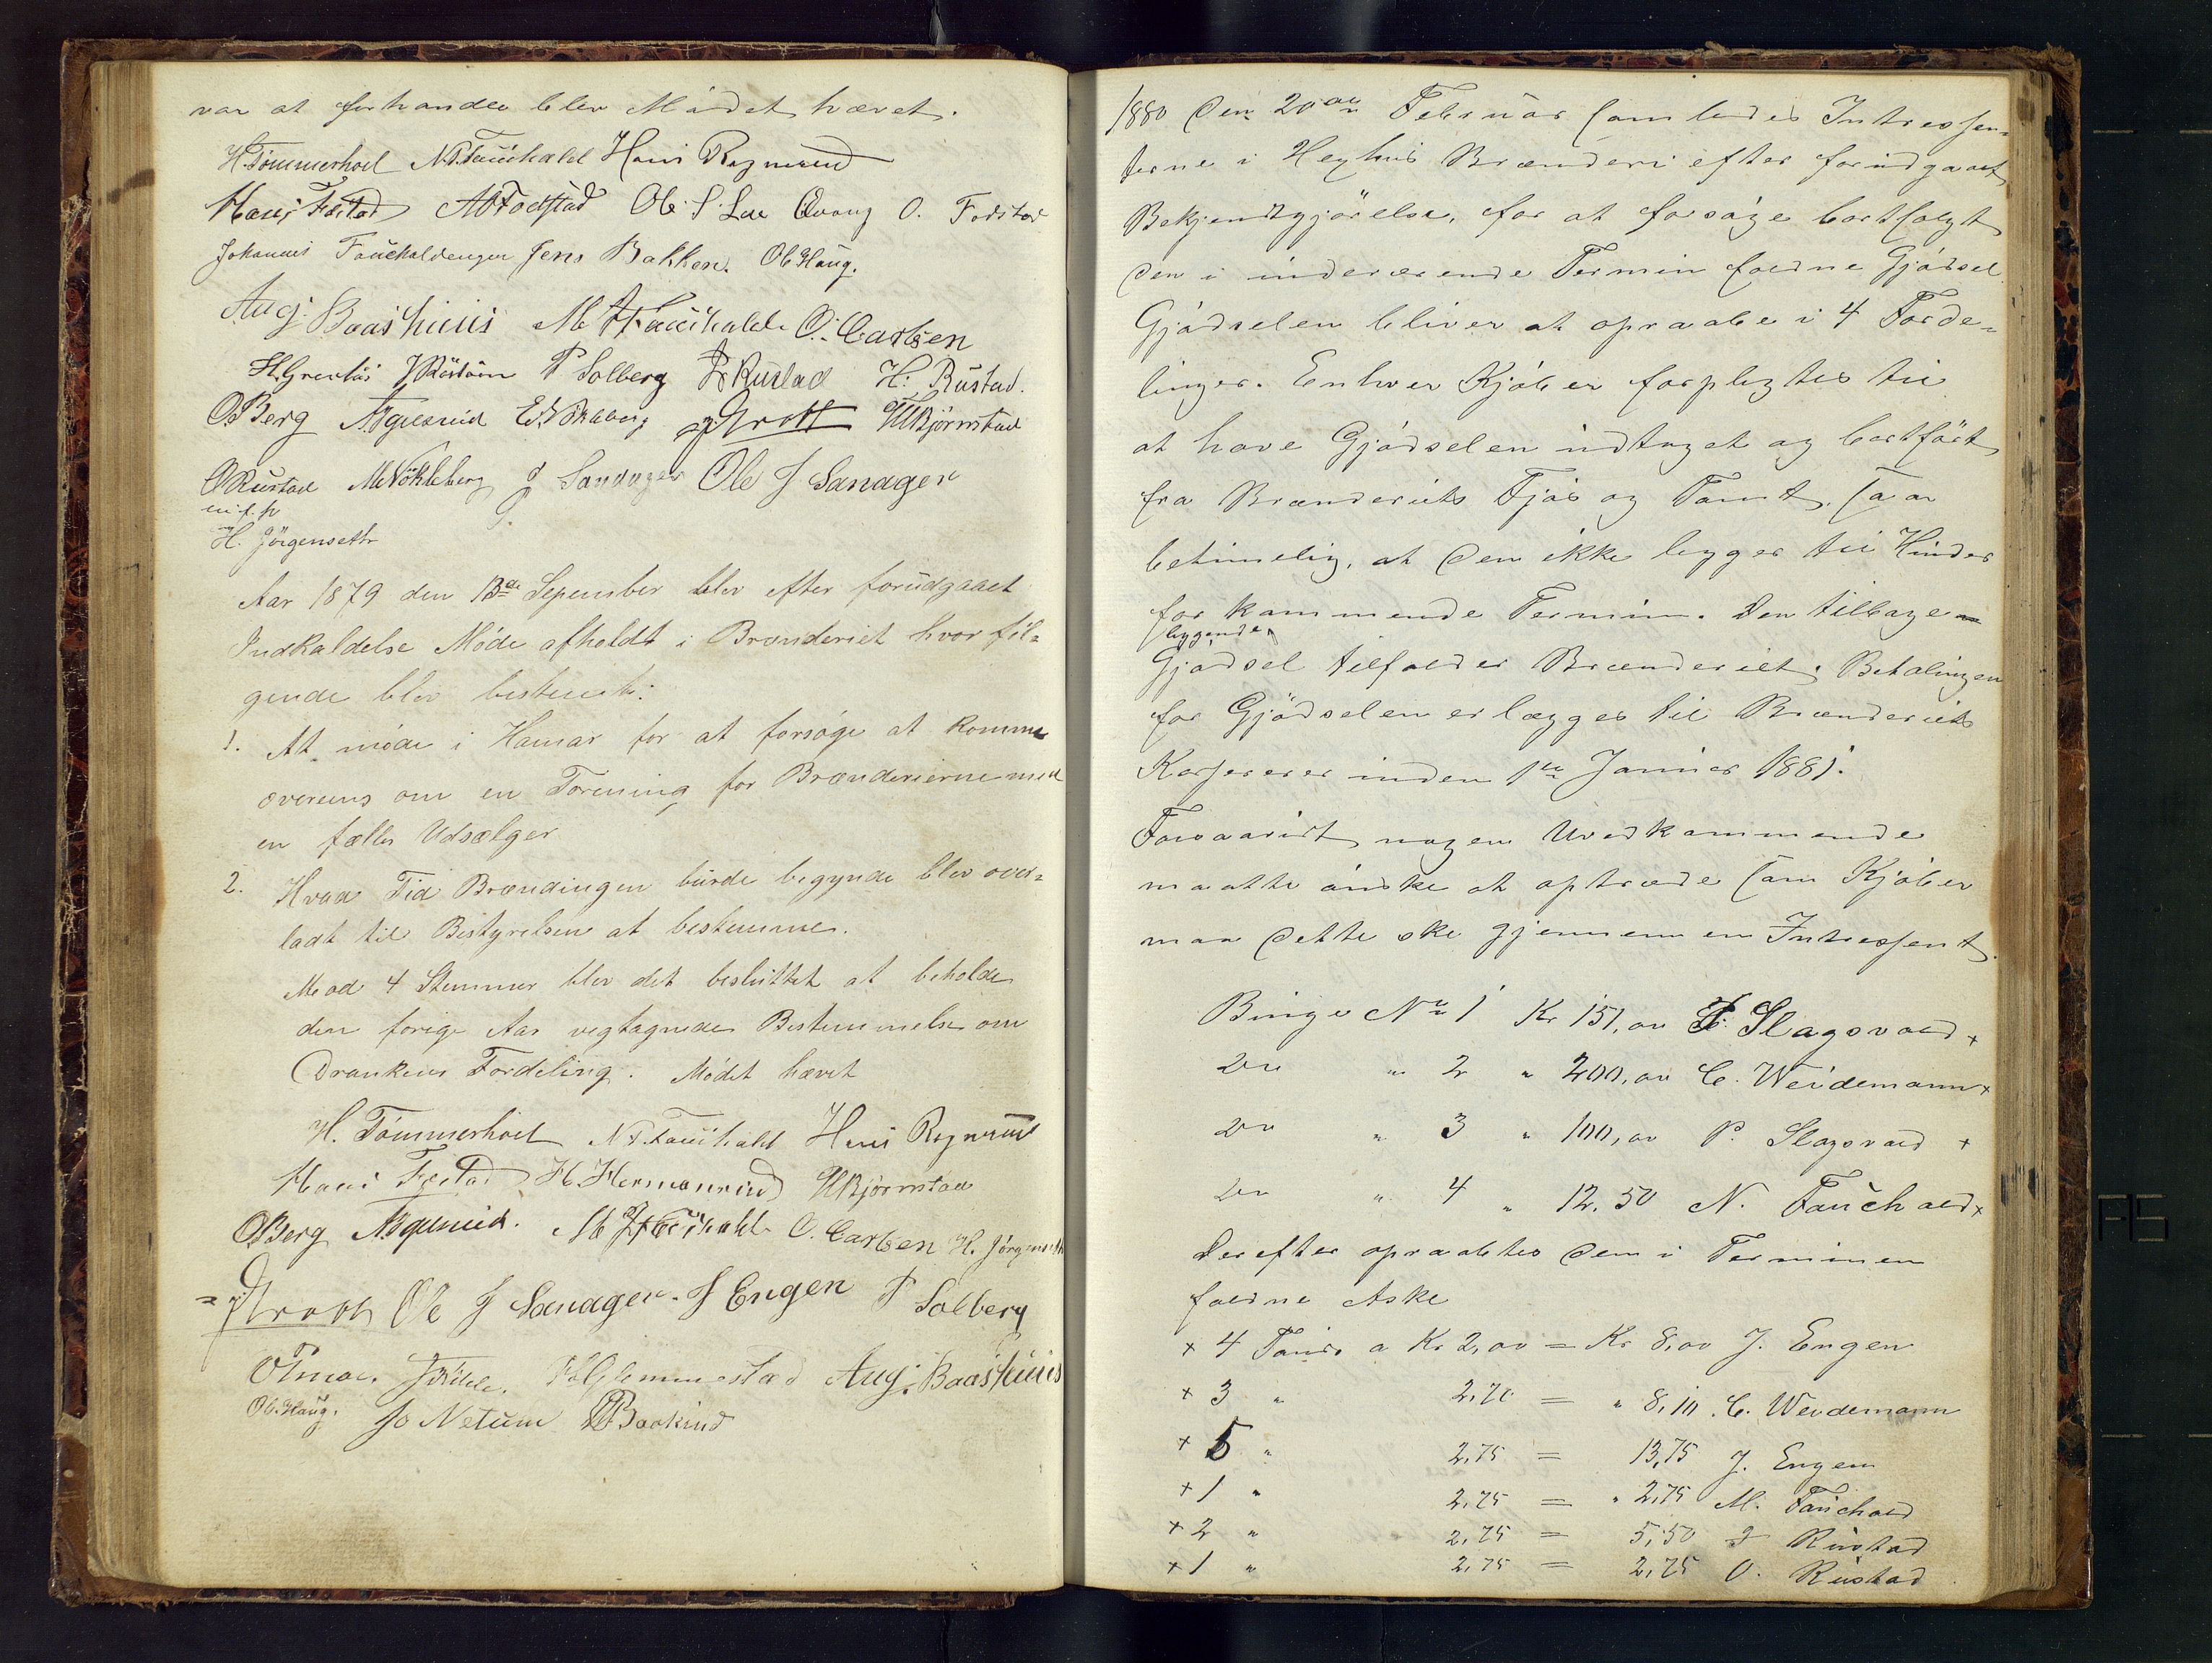 var at forhandle blev Mødet hævet.
H. Tømmerhoel N. Fauchald Hans Rognerud
Hans Festad Ole S. Lae O. Fodstad
Johannes Fauchaldengen Jens Bakken. Ole Haug.
Aug. Baashuus M Fauchald O. Carlsen
P Solberg Rustad H. Rustad.
OBerg ABjørnstad
ORustad MNøkleberg J Sandager Ole J Sanager
m. f. p
H. Jørgenseth
Aar 1879 den 13de Sepember blev efter forudgaaet
Indkaldelse Møde afholdt i Brænderiet hvor føl=
gende blev bestemt:
1. At møde i Hamar for at forsøge at komme
overens om en Forening for Brænderierne med
en fælles Udsælger
2. Hvad Tid Brændingen burde begynde blev over=
ladt til Bestyrelsen at bestemme.
Mod 4 Stemmer blev det besluttet at beholde
den forige Aar vegtagnede Bestemmelse om
Drankens Fordeling. Mødet hævet
H. Tømmerhoel N. Fauchald Hans Rognerud
Hans Festad H. Hermanrud Bjørnstad
OBerg M Fauchald O. Carlsen H. Jørgenseth
Ole J Sanager. J Engen P Solberg
Glemmestad Aug. Baashuus
Ole Haug. Jo Netum Baakind
1880 den 20de Februar samledes Intressen=
terne i Hexhus Brænderi efter forudgaaet
Bekjendtgjørelse, for at forsøge bortsolgt
den i inderværende Termin faldne Gjødsel
Gjødselen bliver at opraabe i 4 Forde=
linger. Enhver Kjøber forpligtes til
at have Gjødselen udtaget og bortført
fra Brænderiets Fjøs og Tomt, saa
betimelig, at den ikke ligger til Hinder
for kommende Termin. Den tilbage
liggende
Gjødsel tilfalder Brænderiet. Betalingen
for Gjødselen erlægges til Brænderiets
Kasserer inden 1ste Januar 1881.
Forsaavidt nogen Uvedkommende
maatte ønske at optræde som Kjøber
maa dette ske gjennem en Intressent.
Binge No 1 Kr 151,00 P. Slagsvold +
Do " 2 " 200,00 C. Weidemann +
Do " 3 " 100,00 P. Slagsvold +
Do " 4 " 12,50 N. Fauchald +
Derefter opraabtes den i Terminen
faldne Aske
+ 4 Tønder a Kr 2,00 = Kr 8,00 J. Engen
+ 3 " 2,70 = " 8,10 C. Weidemann
+ 5 " 2,75 = 13,75 J. Engen
+ 1 " 2,75 = " 2,75 M. Fauchald
+ 2 " 2,75 = 5,50 J Rustad
+ 1 " 2,75 = 2,75 O. Rustad